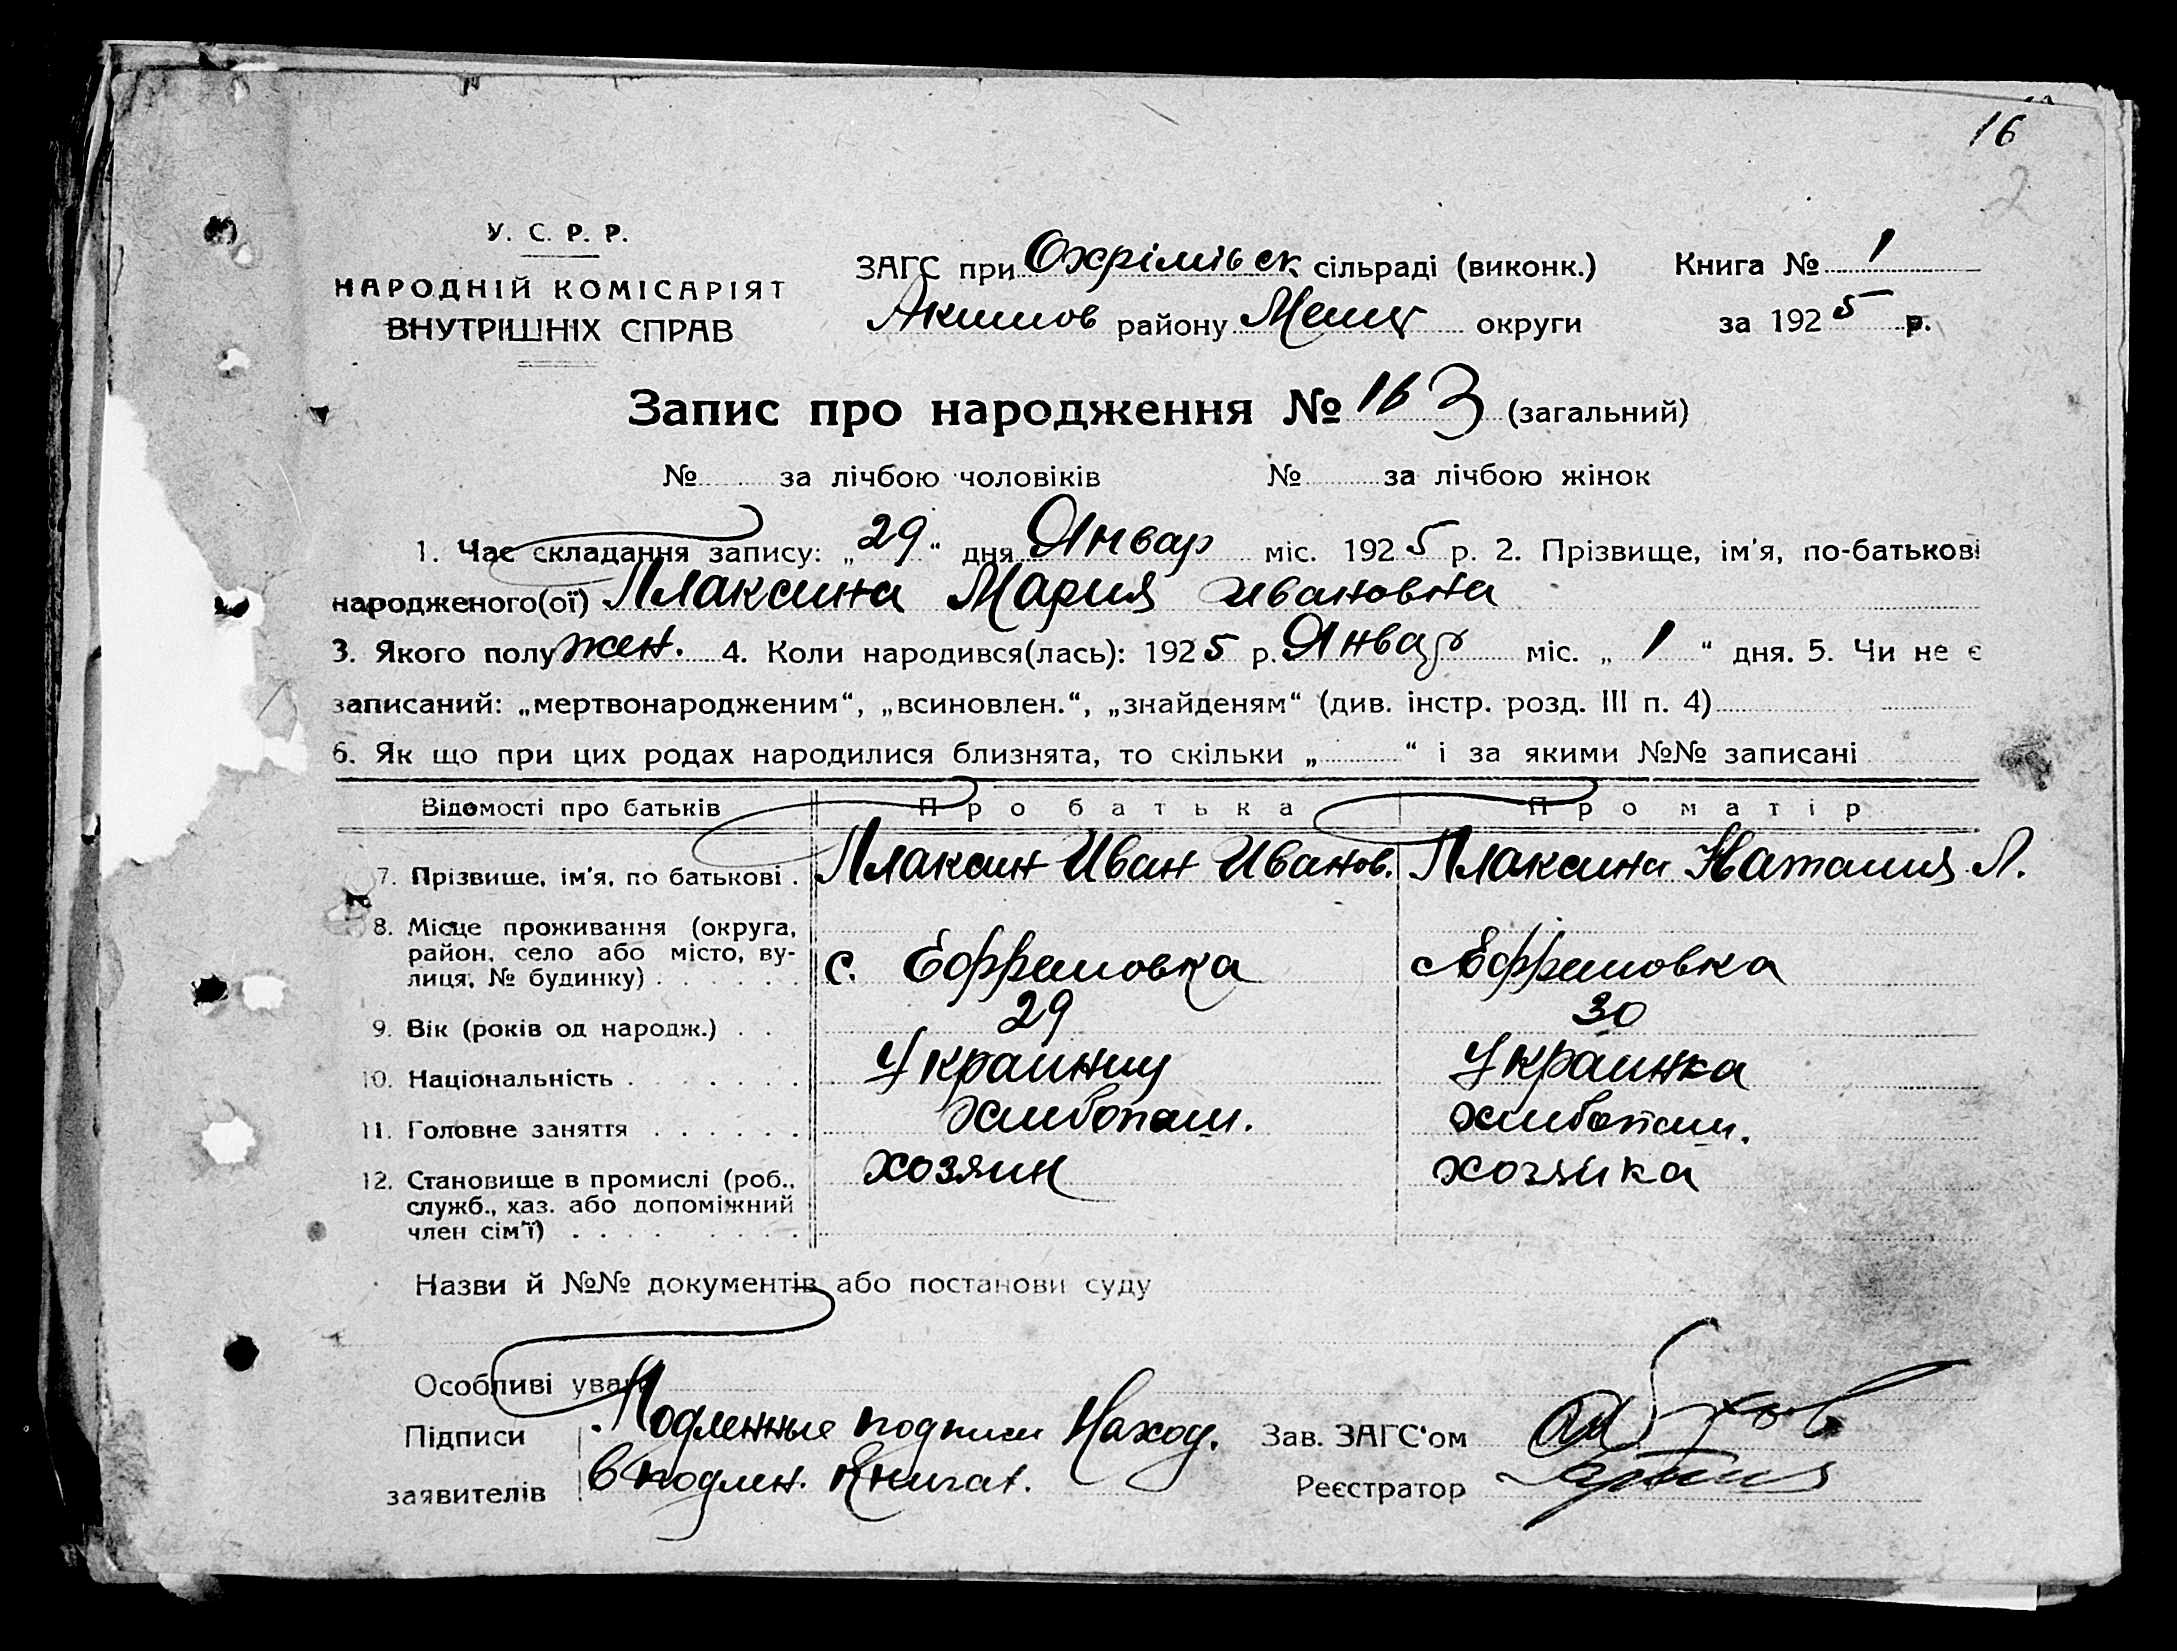 16
2
У. С. Р. Р.
НАРОДНІЙ КОМІСАРІЯТ
ВНУТРІШНІХ СПРАВ
ЗАГС при Охрімівск сільраді (виконк.)
Акимов району Меліт округи
Книга № 1
за 1925 р.
Запис про народження № 163 (загальний)
№ за лічбою чоловіків № за лічбою жінок
1. Час складання запису: „29“ дня Январ міс. 1925 р. 2. Прізвище, ім'я, по-батькові
народженого(ої) Плаксина Мария Ивановна
3. Якого полу жен. 4. Коли народився(лась): 1925 р. Январ міс. „1“ дня. 5. Чи не є
записаний: „мертвонародженим“, „всиновлен.“, „знайденям“ (див. інстр. розд. III п. 4)
6. Як що при цих родах народилися близнята, то скільки „ “ і за якими №№ записані
Відомості про батьків Про батька Про матір
7. Прізвище, ім'я, по батькові . Плаксин Иван Иванов. Плаксина Наталия Л.
8. Місце проживання (округа,
район, село або місто, ву-
лиця, № будинку) . . . . . . с. Ефремовка с Ефремовка
9. Вік (років од народж.) . . 29 30
10. Національність . . . . . . Украинец Украинка
11. Головне заняття . . . . . . хлибопаш. хлибопаш.
12. Становище в промислі (роб., хозяин хозяйка
служб., хаз. або допоміжний
член сім'ї) . . . . . . . .
Назви й №№ документів або постанови суду
Особливі уваги
Підписи Подленные подписи наход. Зав. ЗАГС'ом
заявителів в подлен. книгах. Реєстратор